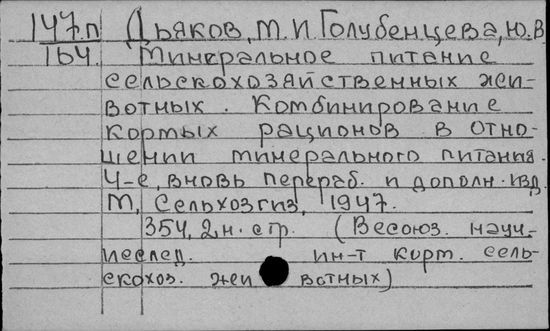 147.п Дьяков, М. И. Голубенцева, Ю. В.
164. Минеральное питание
сельскохозяйственных жи-
вотных. Комбинирование
кормых рационов в отно-
шении минерального питания.
4-е, вновь перераб. и дополн. изд.
М, Сельхозгиз, 1947.
354, 2 н. стр. (Весоюз. науч-
исслед. ин-т корм. сель-
скохоз. жи вотных)